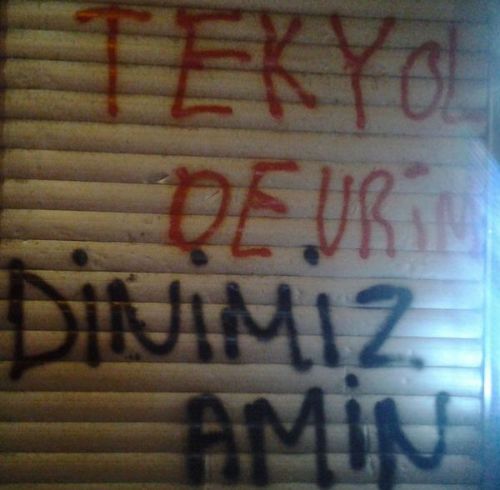 TEK YOL
DEVRİM
DİNİMİZ
AMİN